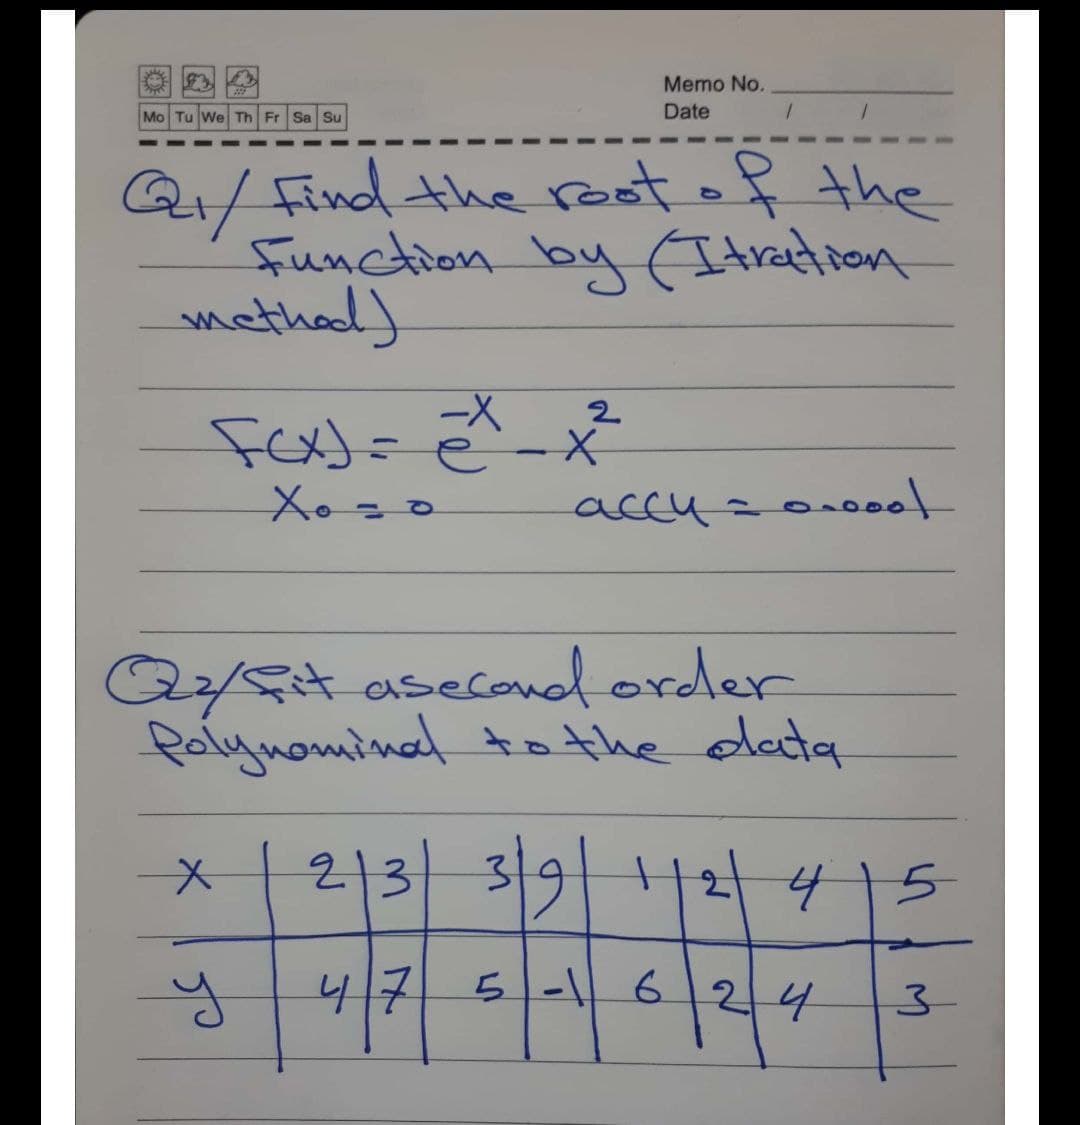 Memo No.
Mo Tu We Th Fr Sa Su
Date / /
Q1/ Find the root of the
Function by (Itration
method)
F(x) = e^-x - x^2
X0 = 0 accu = 0.0001
Q2/ fit a second order
Polynominal to the data
x | 2 | 3 | 3 | 9 | 1 | 2 | 4 | 5
y | 4 | 7 | 5 | -1 | 6 | 2 | 4 | 3